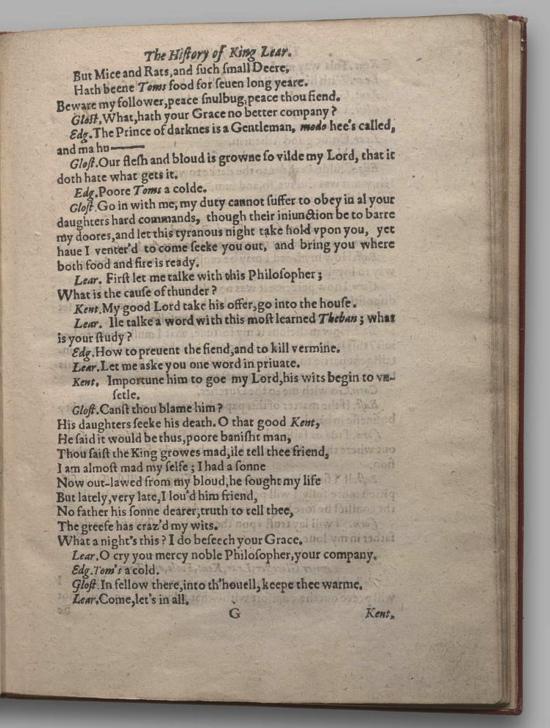 The Hiſtory of King Lear.
But Mice and Rats, and ſuch ſmall Deere,
Hath beene Toms food for ſeuen long yeare.
Beware my follower, peace ſnulbug, peace thou fiend.
Gloſt. What, hath your Grace no better company?
Edg. The Prince of darknes is a Gentleman, modo hee's called,
and ma hu——
Gloſt. Our fleſh and bloud is growne ſo vilde my Lord, that it
doth hate what gets it.
Edg. Poore Toms a colde.
Gloſt. Go in with me, my duty cannot ſuffer to obey in al your
daughters hard commands, though their iniunction be to barre
my doores, and let this tyranous night take hold vpon you, yet
haue I venter'd to come ſeeke you out, and bring you where
both food and fire is ready.
Lear. Firſt let me talke with this Philoſopher;
What is the cauſe of thunder?
Kent. My good Lord take his offer, go into the houſe.
Lear. Ile talke a word with this moſt learned Theban; what
is your ſtudy?
Edg. How to preuent the fiend, and to kill vermine.
Lear. Let me aske you one word in priuate.
Kent. Importune him to goe my Lord, his wits begin to vn-
ſetle.
Gloſt. Canſt thou blame him?
His daughters ſeeke his death. O that good Kent,
He ſaid it would be thus, poore baniſht man,
Thou ſaiſt the King growes mad, ile tell thee friend,
I am almoſt mad my ſelfe; I had a ſonne
Now out-lawed from my bloud, he ſought my life
But lately, very late, I lou'd him friend,
No father his ſonne dearer, truth to tell thee,
The greefe has craz'd my wits.
What a night's this? I do beſeech your Grace.
Lear. O cry you mercy noble Philoſopher, your company.
Edg. Tom's a cold.
Gloſt. In fellow there, into th'houell, keepe thee warme.
Lear. Come, let's in all.
G Kent.